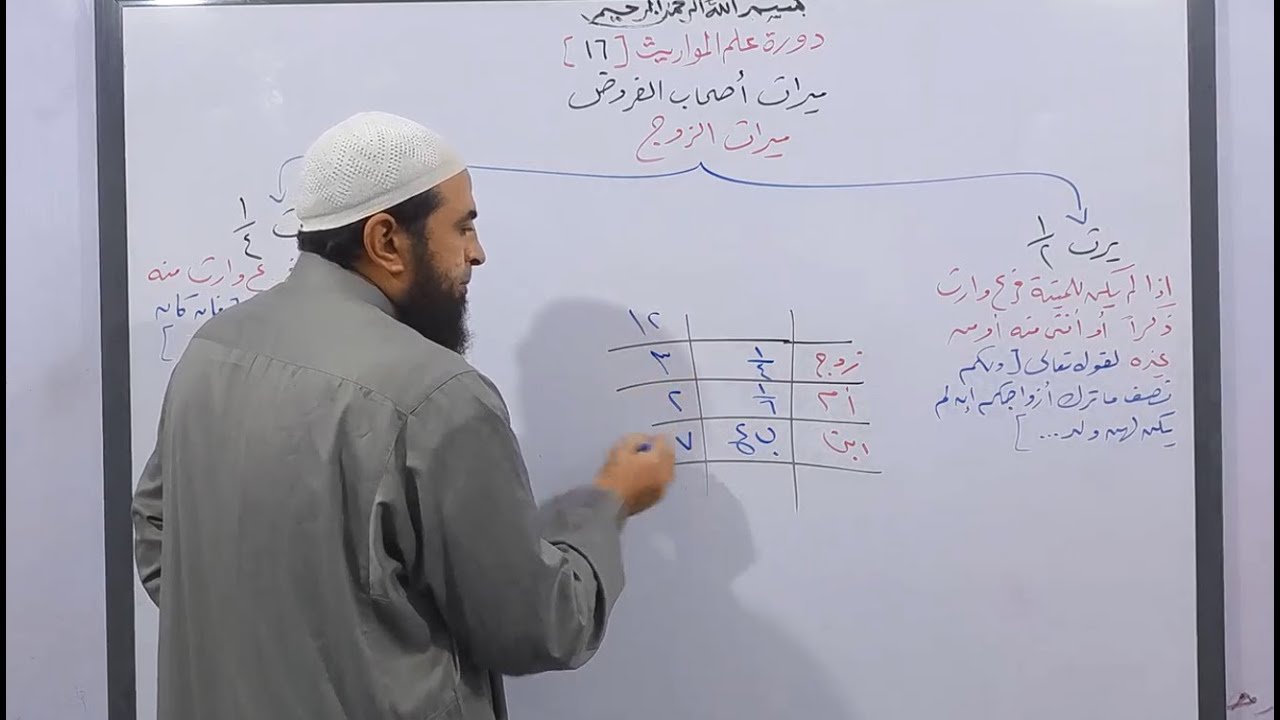 بسم الله الرحمن الرحيم
دورة علم المواريث [١٦]
ميراث أصحاب الفروض
ميراث الزوج
يرث ١/٢
إذا لم يكن للميتة فرع وارث
ذكراً أو أنثى منه أو من
غيره لقوله تعالى [ولكم
نصف ما ترك أزواجكم إن لم
يكن لهن ولد ...]
١/٤
فرع وارث منه
فإن كان
]
١٢
زوج ١/٤ ٣
أم ١/٦ ٢
ابن ب ع ٧